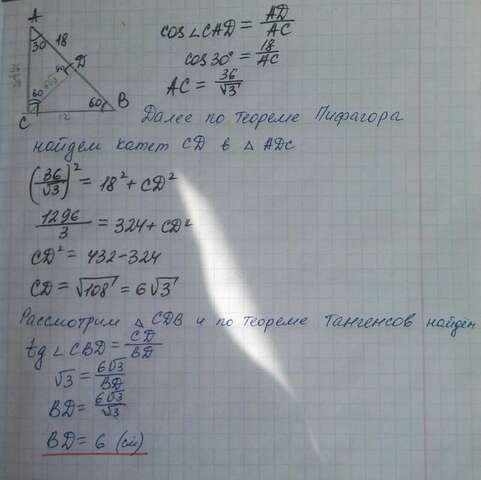 A
30 18
90 D
60 6√3
60
C 12 B
cos∠CAD = AD/AC
cos30° = 18/AC
AC = 36/√3
Далее по теореме Пифагора
найдем катет CD в △ ADC
(36/√3)² = 18² + CD²
1296/3 = 324 + CD²
CD² = 432 - 324
CD = √108 = 6√3
Рассмотрим △ CDB и по теореме тангенсов найдем
tg ∠CBD = CD/BD
√3 = 6√3/BD
BD = 6√3/√3
BD = 6 (см)